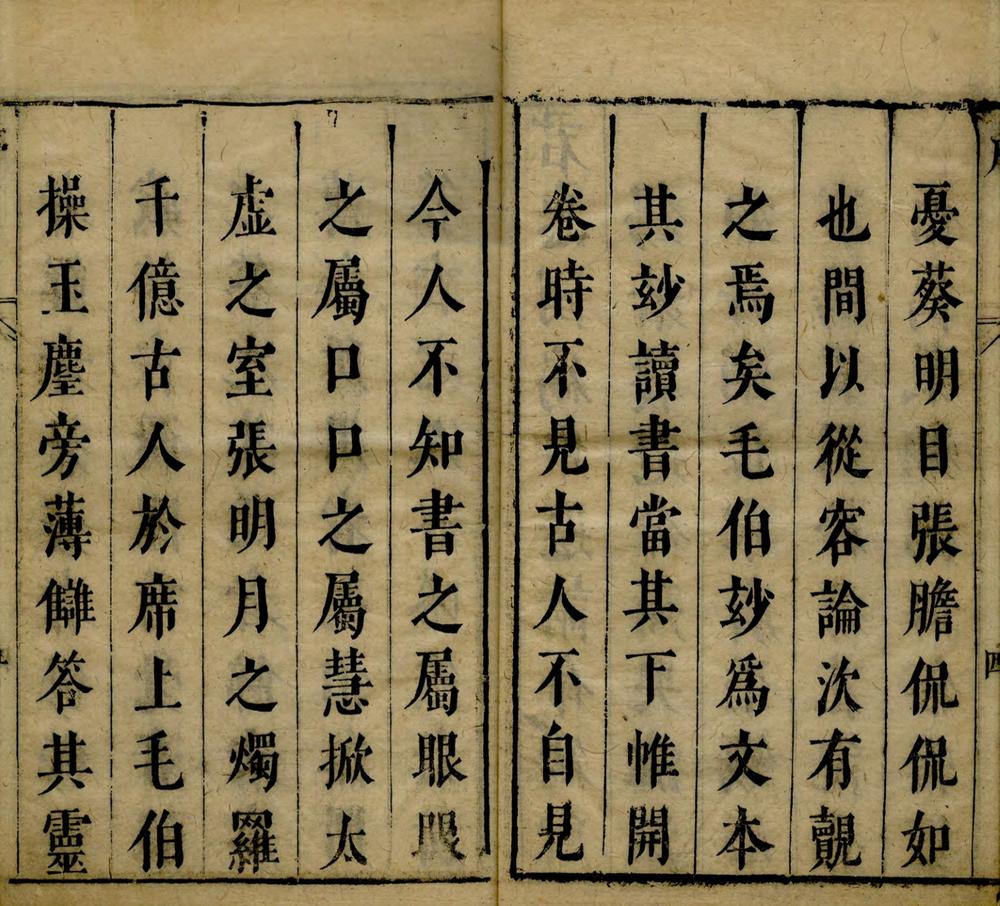 憂葵明目張膽侃侃如
也間以從容論次有覿
之焉矣毛伯玅爲文本
其玅讀書當其下帷開
卷時不見古人不自見
今人不知書之屬眼眼
之屬口口之屬慧掀太
虛之室張明月之燭羅
千億古人於席上毛伯
操玉麈旁薄讎答其靈
四